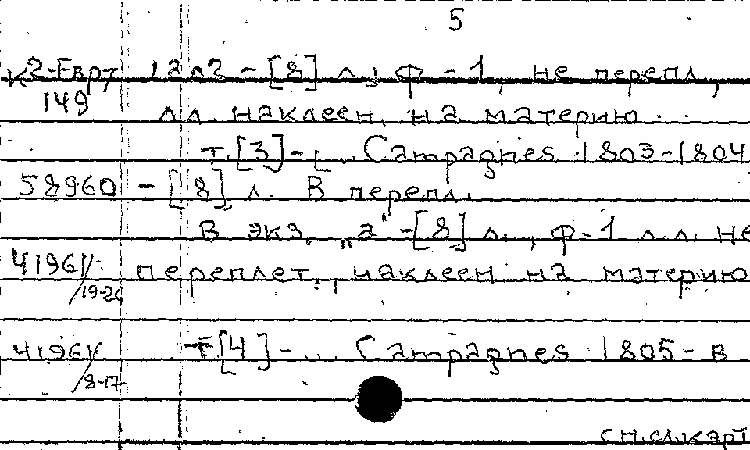 5
К2-Евр/ 12л2 - [8] л., ф-1, не перепл.,
149
лл. наклеен. на материю.
т.[3]-[... Campagnes 1803-1804
58960 - [8] л. В перепл.
В экз. "а"-[8] л., ф-1 л.л. не
41961/ переплет., наклеен на материю
/19-26
41961/ т[4]-... Campagnes 1805-в
/8-17
см.сл.карт